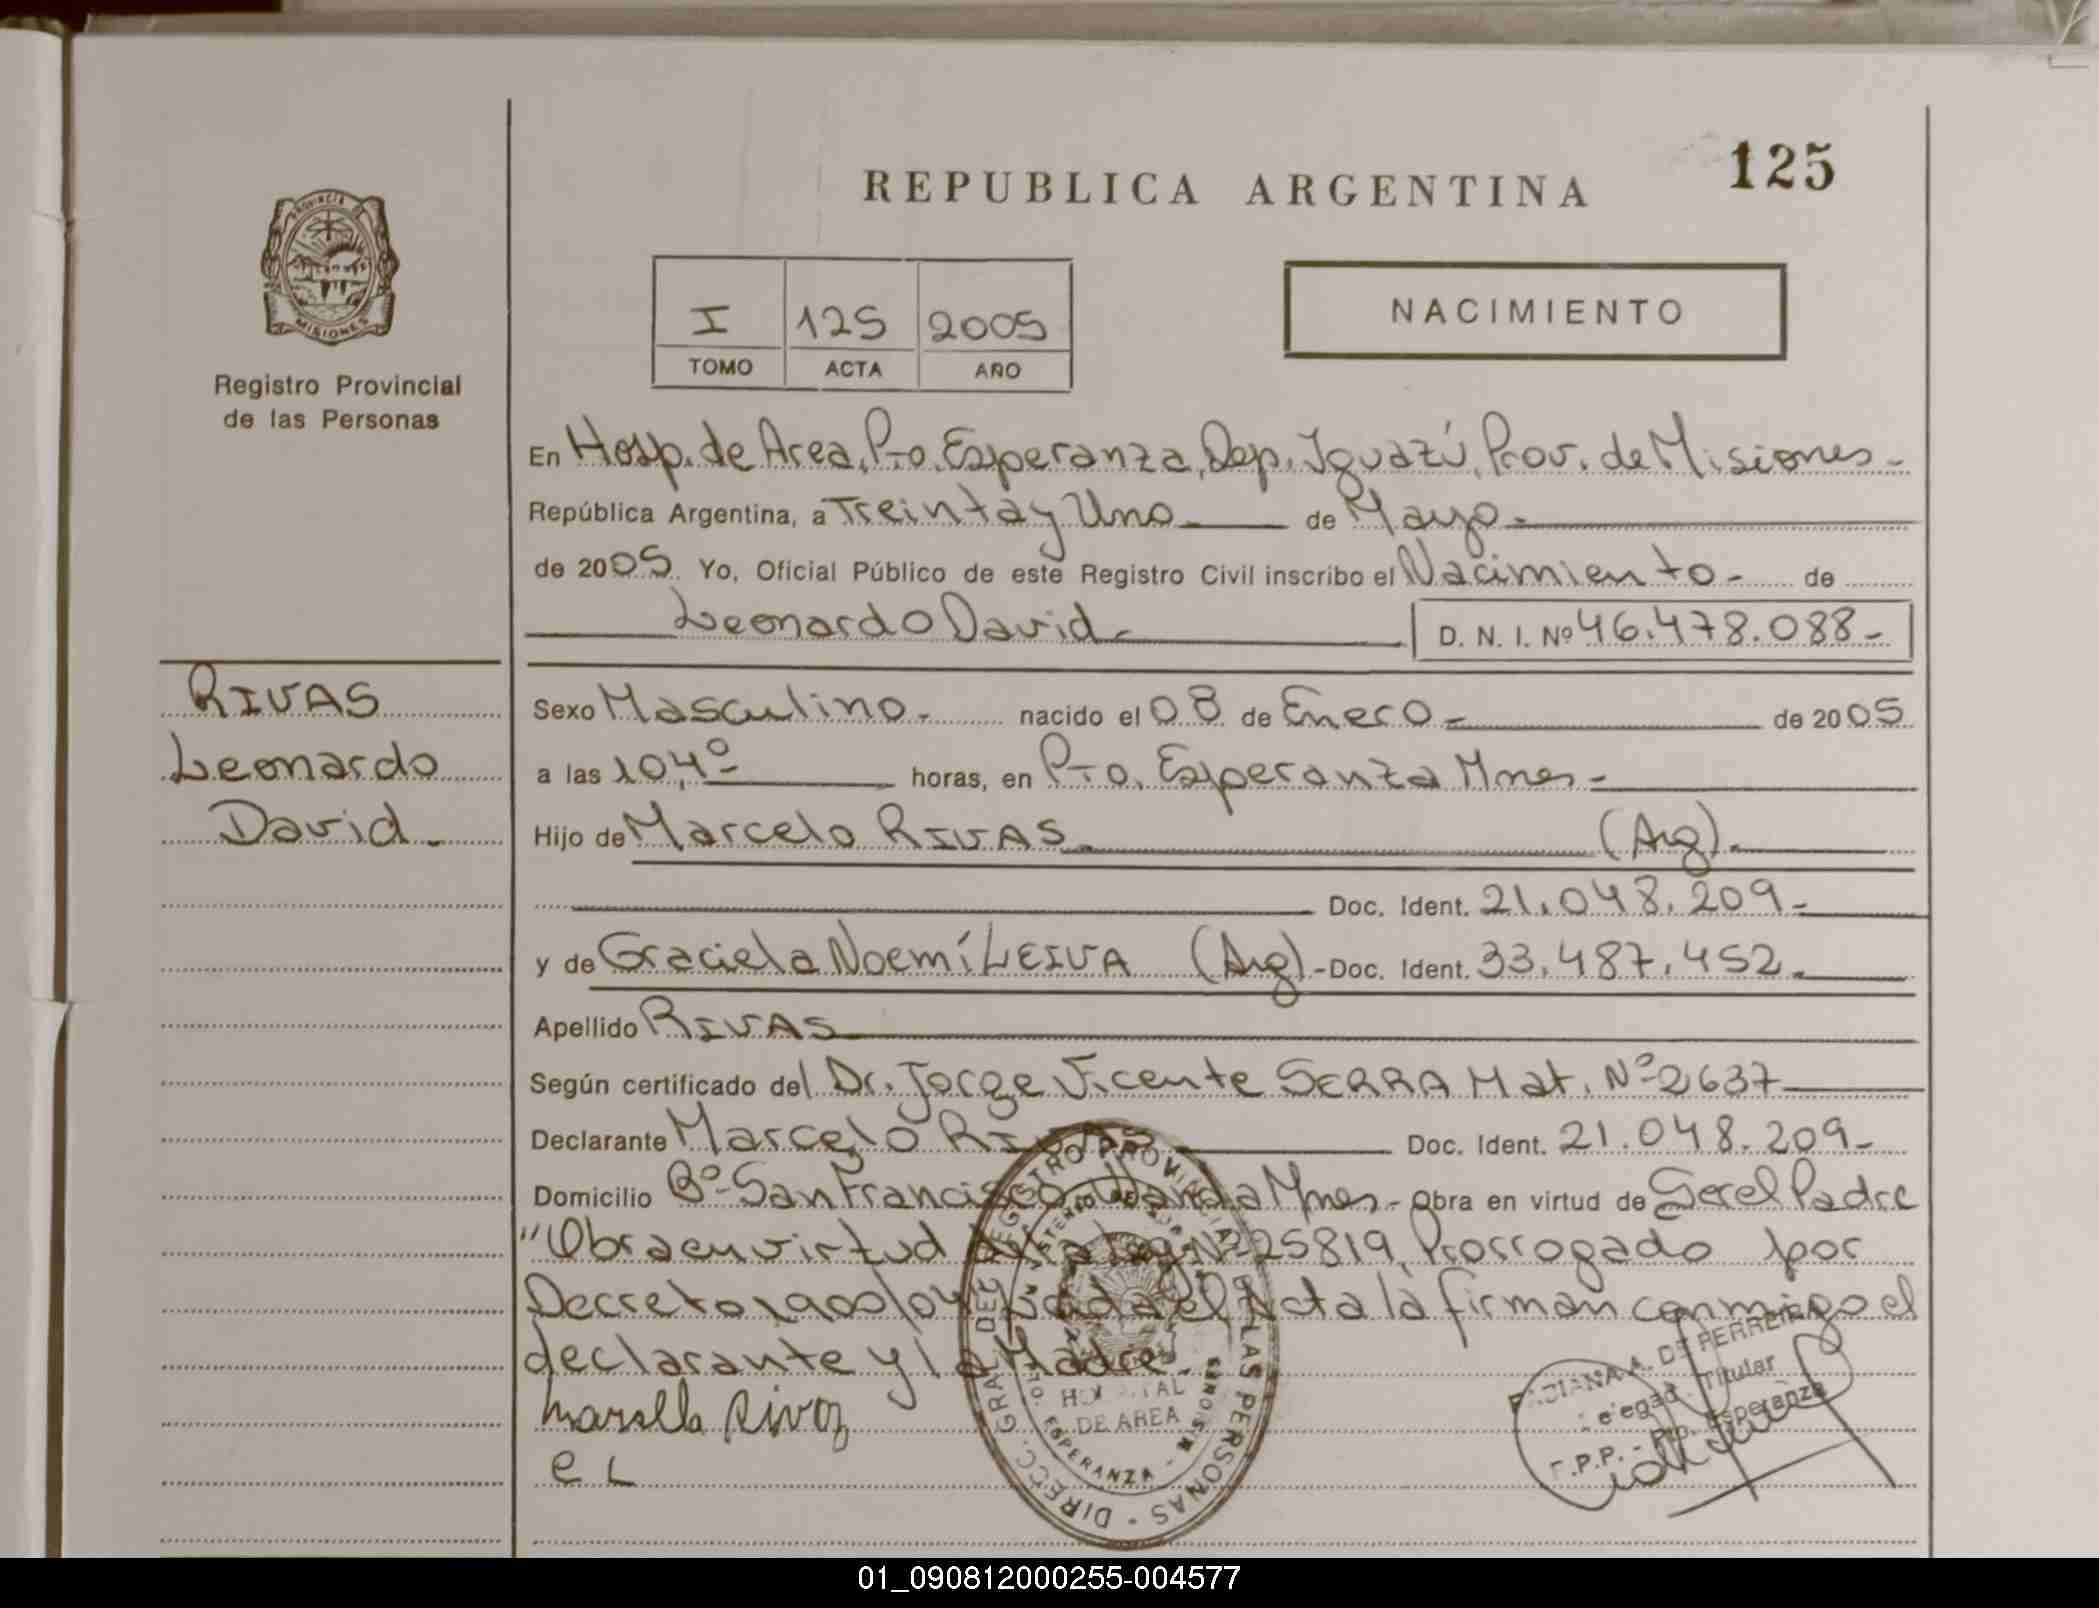 125
REPUBLICA ARGENTINA
PROVINCIA DE
MISIONES
Registro Provincial
de las Personas
I 125 2005
TOMO ACTA AÑO
NACIMIENTO
En Hosp. de Area, Pto. Esperanza, Dep. Iguazú, Prov. de Misiones-
República Argentina, a Treinta y Uno- de Mayo.-
de 2005. Yo, Oficial Público de este Registro Civil inscribo el Nacimiento- de
Leonardo David- D. N. I. Nº 46.478.088-
RIVAS
Leonardo
David.-
Sexo Masculino.- nacido el 08 de Enero- de 2005
a las 10,4º horas, en Pto. Esperanza Mnes-
Hijo de Marcelo RIVAS. (Arg).-
Doc. Ident. 21.048.209-
y de Graciela Noemí LEIVA (Arg)-Doc. Ident. 33.487.452.
Apellido RIVAS
Según certificado del Dr. Jorge Vicente SERRA Mat. Nº 2637
Declarante Marcelo RIVAS Doc. Ident. 21.048.209-
Domicilio Bº San Francisco Wanda Mnes- Obra en virtud de Ser el Padre
"Obra en virtud Ley Nº 25819, Prorrogado por
Decreto 1900/04 Leida el Acta la firman conmigo el
declarante y la Madre.
Marsello Rivaz
e L
DIRECC. GRAL. DEL REGISTRO PROVINCIAL DE LAS PERSONAS
MINISTERIO DE
HOSPITAL
DE AREA
ESPERANZA - MISIONES
A. DE FERREIRA
Titular
Pto. Esperanza
01_090812000255-004577